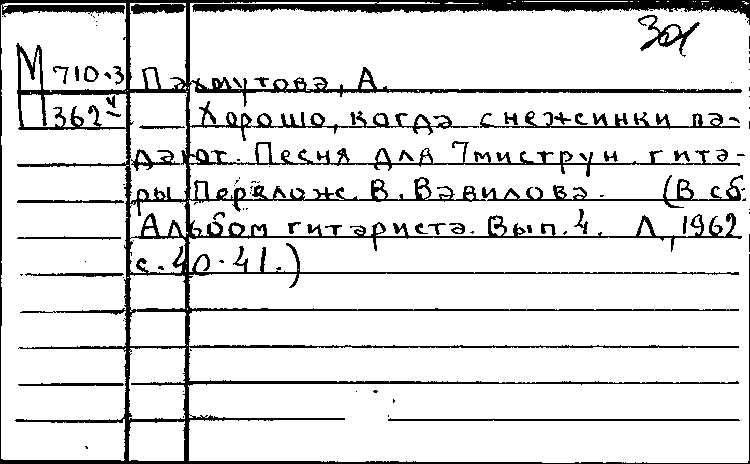 301
М 710.3 Пахмутова, А.
П 362 ч Хорошо, когда снежинки па-
дают. Песня для 7миструн. гита-
ры Перелож. В. Вавилова. (В сб.
Альбом гитариста. Вып. 4. Л., 1962
с. 40-41.)